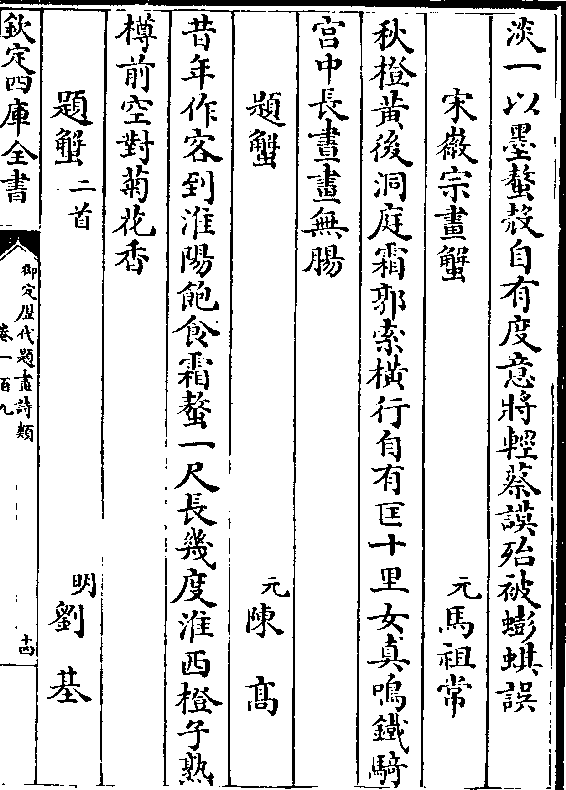 淡一以墨螯殻自有度意將輕蔡謨殆被蟛蜞誤
宋徽宗畫蟹 元馬祖常
秋橙黄後洞庭霜郭索横行自有匡十里女真鳴鐵騎
宫中長晝畫無腸
題蟹 元陳高
昔年作客到淮陽飽食霜螯一尺長幾度淮西橙子熟
樽前空對菊花香
題蟹二首 明劉基
欽定四庫全書
御定歴代題畫詩類
卷一百九
十四